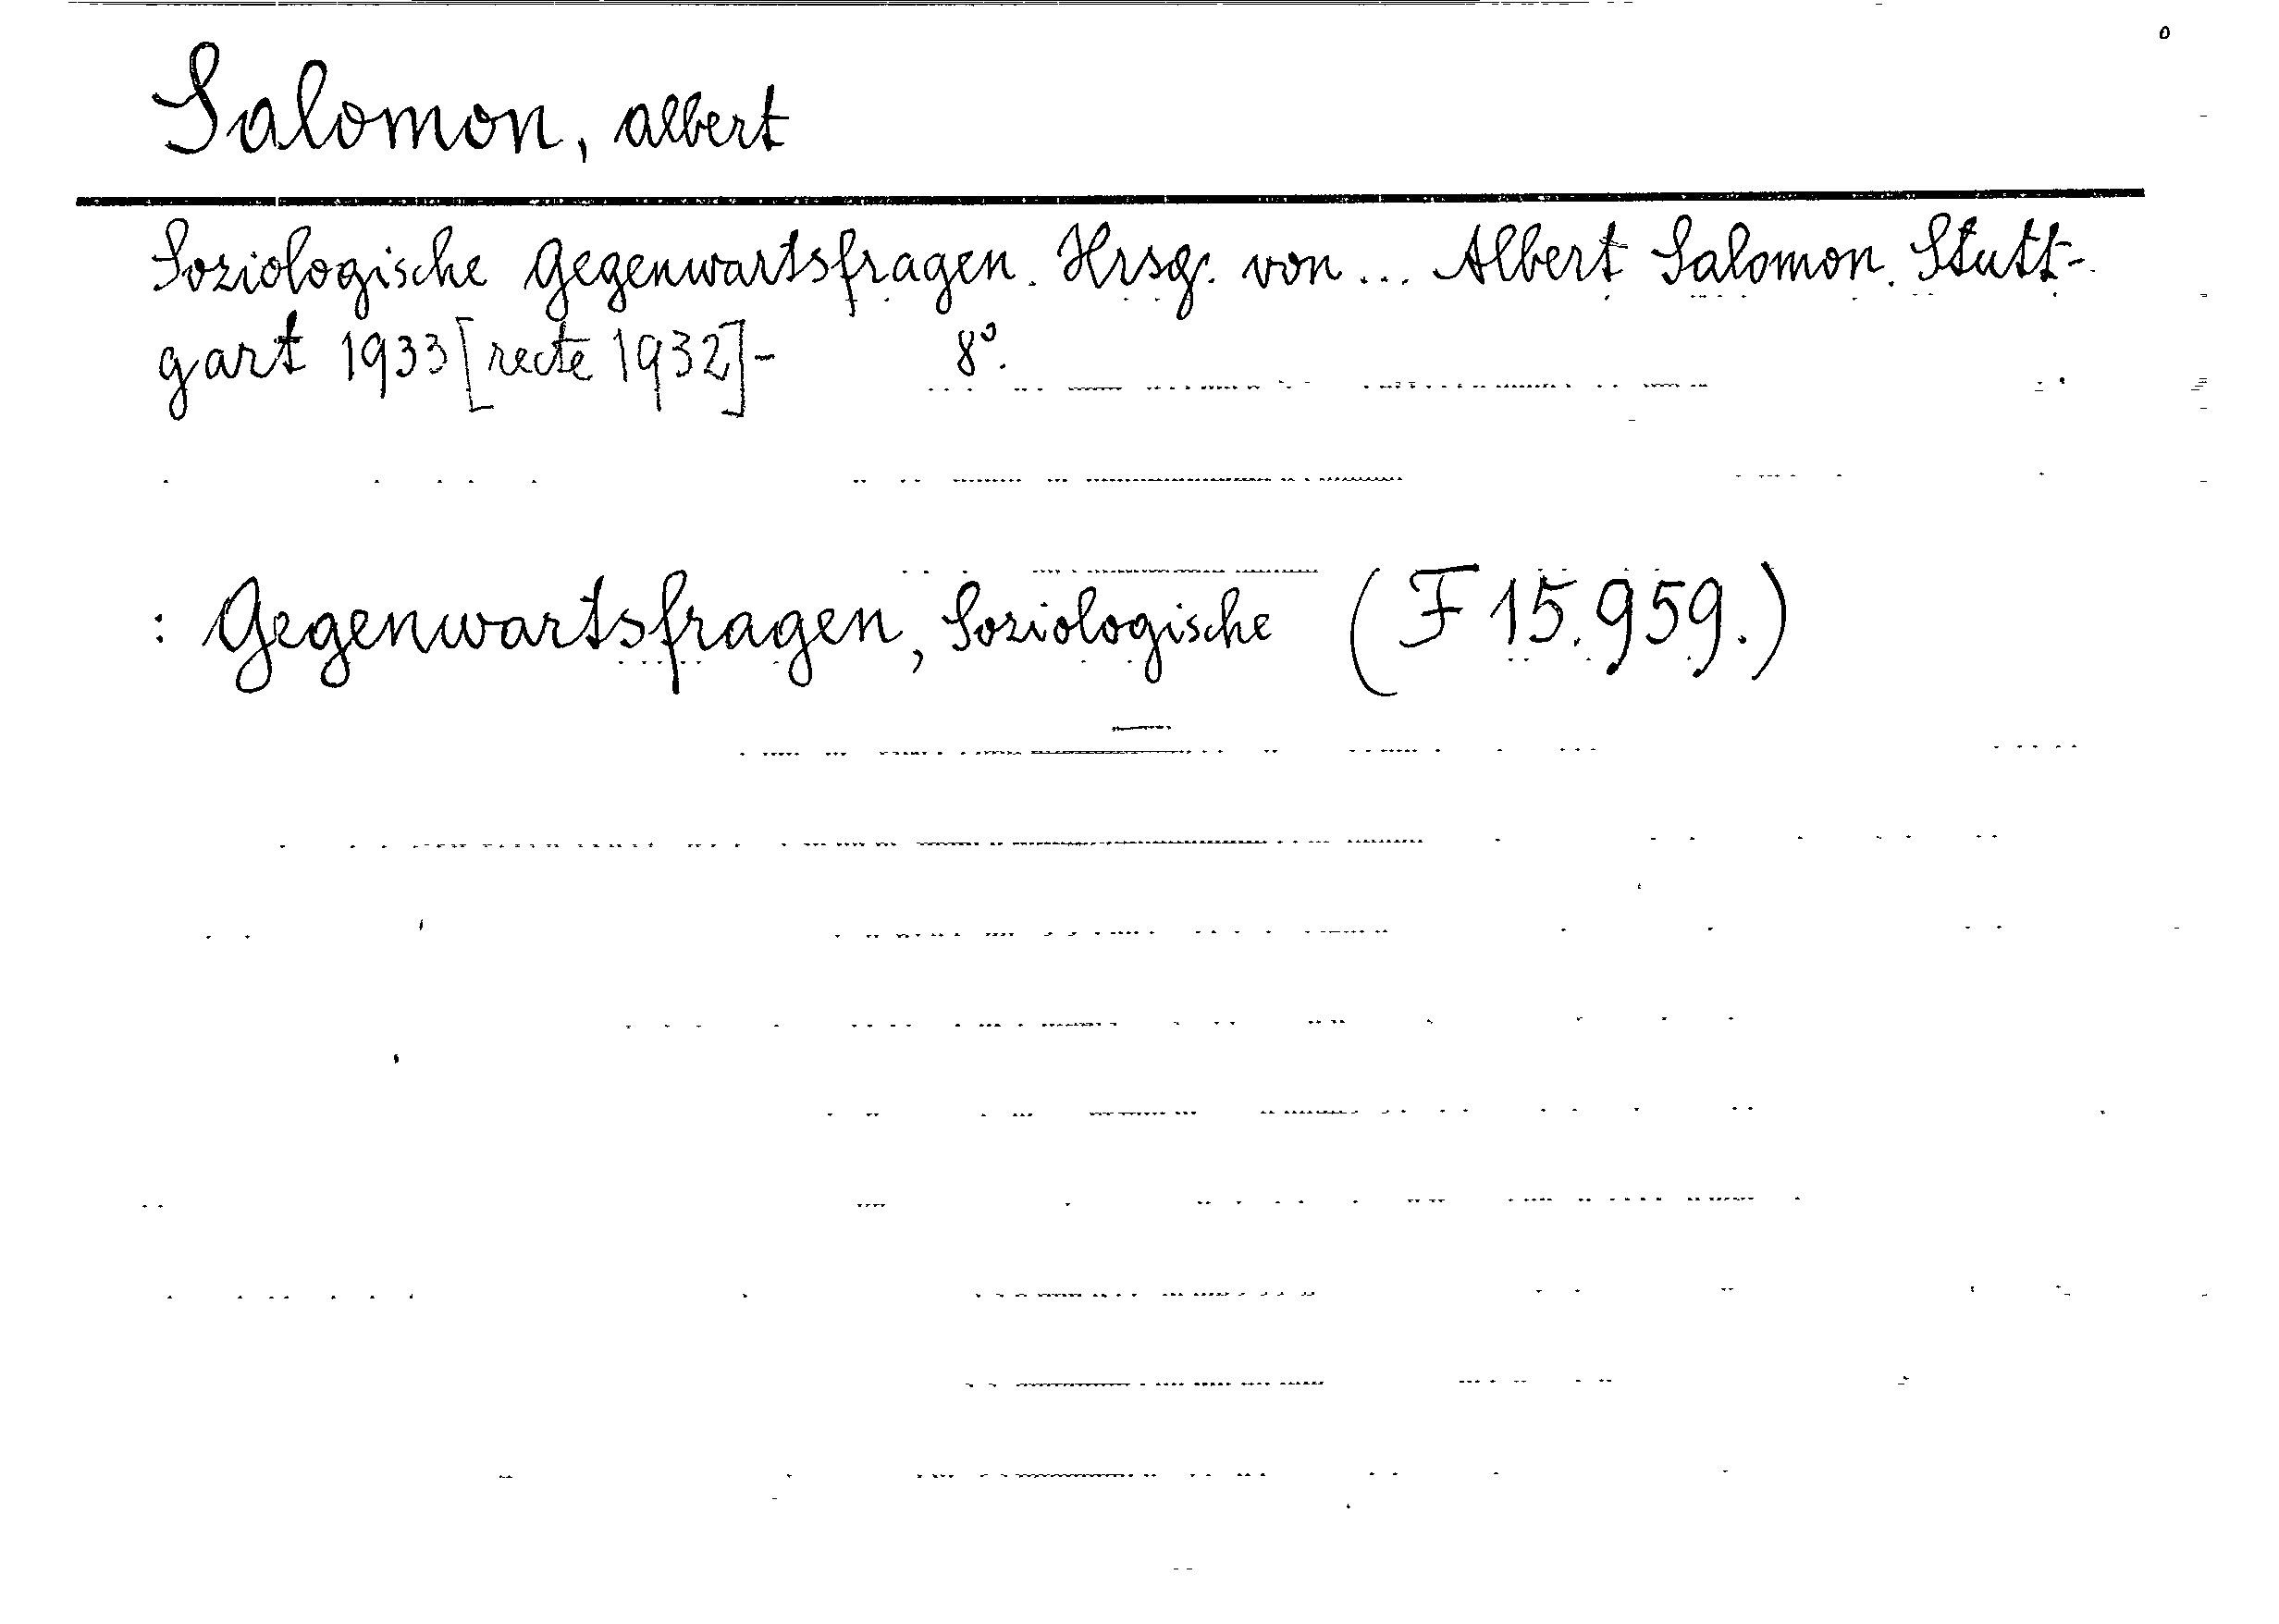 Salomon, Albert
Soziologische Gegenwartsfragen. Hrsg. von ... Albert Salomon. Stutt-
gart 1933 [recte 1932]- 8°.
: Gegenwartsfragen, Soziologische (F 15.959.)